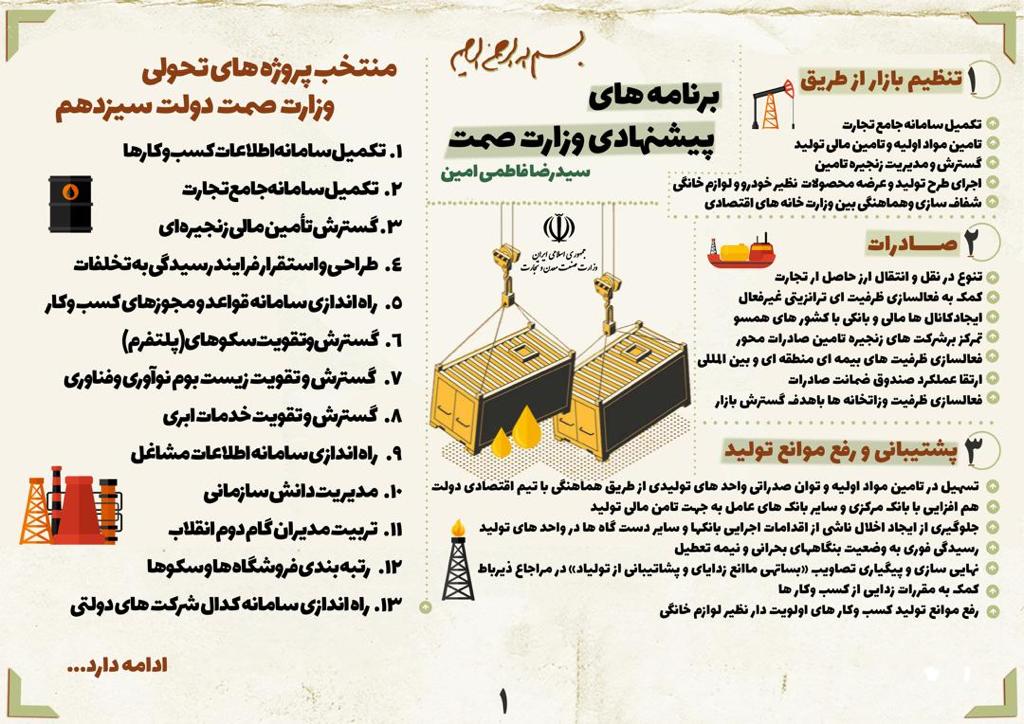 بسم الله الرحمن الرحیم
برنامه های
پیشنهادی وزارت صمت
سیدرضا فاطمی امین
جمهوری اسلامی ایران
وزارت صنعت معدن و تجارت
۱ تنظیم بازار از طریق
تکمیل سامانه جامع تجارت
تامین مواد اولیه و تامین مالی تولید
گسترش و مدیریت زنجیره تامین
اجرای طرح تولید و عرضه محصولات نظیر خودرو و لوازم خانگی
شفاف سازی وهماهنگی بین وزارت خانه های اقتصادی
۲ صادرات
تنوع در نقل و انتقال ارز حاصل از تجارت
کمک به فعالسازی ظرفیت ای ترانزیتی غیرفعال
ایجادکانال ها مالی و بانکی با کشور های همسو
تمرکز برشرکت های زنجیره تامین صادرات محور
فعالسازی ظرفیت های بیمه ای منطقه ای و بین المللی
ارتقا عملکرد صندوق ضمانت صادرات
فعالسازی ظرفیت وزاتخانه ها باهدف گسترش بازار
۳ پشتیبانی و رفع موانع تولید
تسهیل در تامین مواد اولیه و توان صدراتی واحد های تولیدی از طریق هماهنگی با تیم اقتصادی دولت
هم افزایی با بانک مرکزی و سایر بانک های عامل به جهت تامن مالی تولید
جلوگیری از ایجاد اخلال ناشی از اقدامات اجرایی بانکها و سایر دست گاه ها در واحد های تولید
رسیدگی فوری به وضعیت بنگاههای بحرانی و نیمه تعطیل
نهایی سازی و پیگیاری تصاویب «بساتهی مالنع زدایای و پشاتیبانی از تولیاد» در مراجاع ذیرباط
کمک به مقررات زدایی از کسب وکار ها
رفع موانع تولید کسب وکار های اولویت دار نظیر لوازم خانگی
منتخب پروژه های تحولی
وزارت صمت دولت سیزدهم
۱. تکمیل سامانه اطلاعات کسب و کارها
۲. تکمیل سامانه جامع تجارت
۳. گسترش تأمین مالی زنجیره ای
٤. طراحی و استقرار فرایند رسیدگی به تخلفات
۵. راه اندازی سامانه قواعد و مجوزهای کسب و کار
٦. گسترش و تقویت سکوهای (پلتفرم)
۷. گسترش و تقویت زیست بوم نوآوری و فناوری
۸. گسترش و تقویت خدمات ابری
۹. راه اندازی سامانه اطلاعات مشاغل
۱۰. مدیریت دانش سازمانی
۱۱. تربیت مدیران گام دوم انقلاب
۱۲. رتبه بندی فروشگاه ها و سکوها
۱۳. راه اندازی سامانه کدال شرکت های دولتی
ادامه دارد...
۱